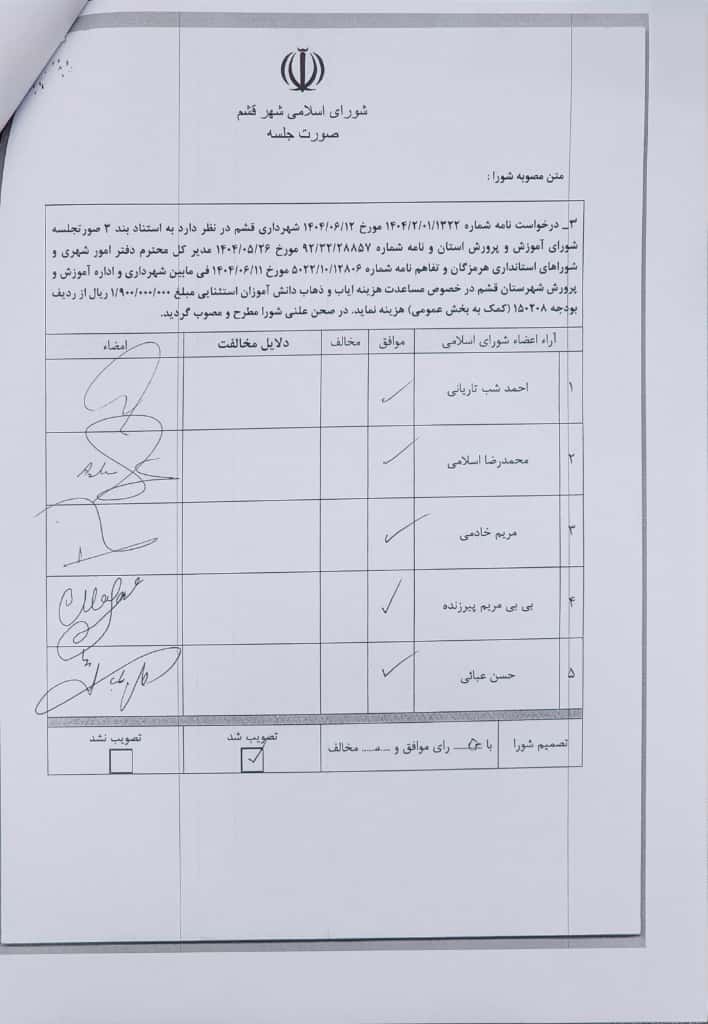 شورای اسلامی شهر قشم
صورت جلسه
متن مصوبه شورا :
۳_ درخواست نامه شماره ۱۴۰۴/۲/۰۱/۱۳۲۲ مورخ ۱۴۰۴/۰۶/۱۲ شهرداری قشم در نظر دارد به استناد بند ۳ صورتجلسه
شورای آموزش و پرورش استان و نامه شماره ۹۲/۳۲/۲۸۸۵۷ مورخ ۱۴۰۴/۰۵/۲۶ مدیر کل محترم دفتر امور شهری و
شوراهای استانداری هرمزگان و تفاهم نامه شماره ۵۰۲۲/۱۰/۱۲۸۰۶ مورخ ۱۴۰۴/۰۶/۱۱ فی مابین شهرداری و اداره آموزش و
پرورش شهرستان قشم در خصوص مساعدت هزینه ایاب و ذهاب دانش آموزان استثنایی مبلغ ۱/۹۰۰/۰۰۰/۰۰۰ ریال از ردیف
بودجه ۱۵۰۲۰۸ (کمک به بخش عمومی) هزینه نماید. در صحن علنی شورا مطرح و مصوب گردید.
آراء اعضاء شورای اسلامی موافق مخالف دلایل مخالفت امضاء
۱ احمد شب تاریانی
۲ محمدرضا اسلامی
۳ مریم خادمی
۴ بی بی مریم پیرزنده
۵ حسن عبائی
تصمیم شورا با رای موافق و مخالف تصویب شد تصویب نشد